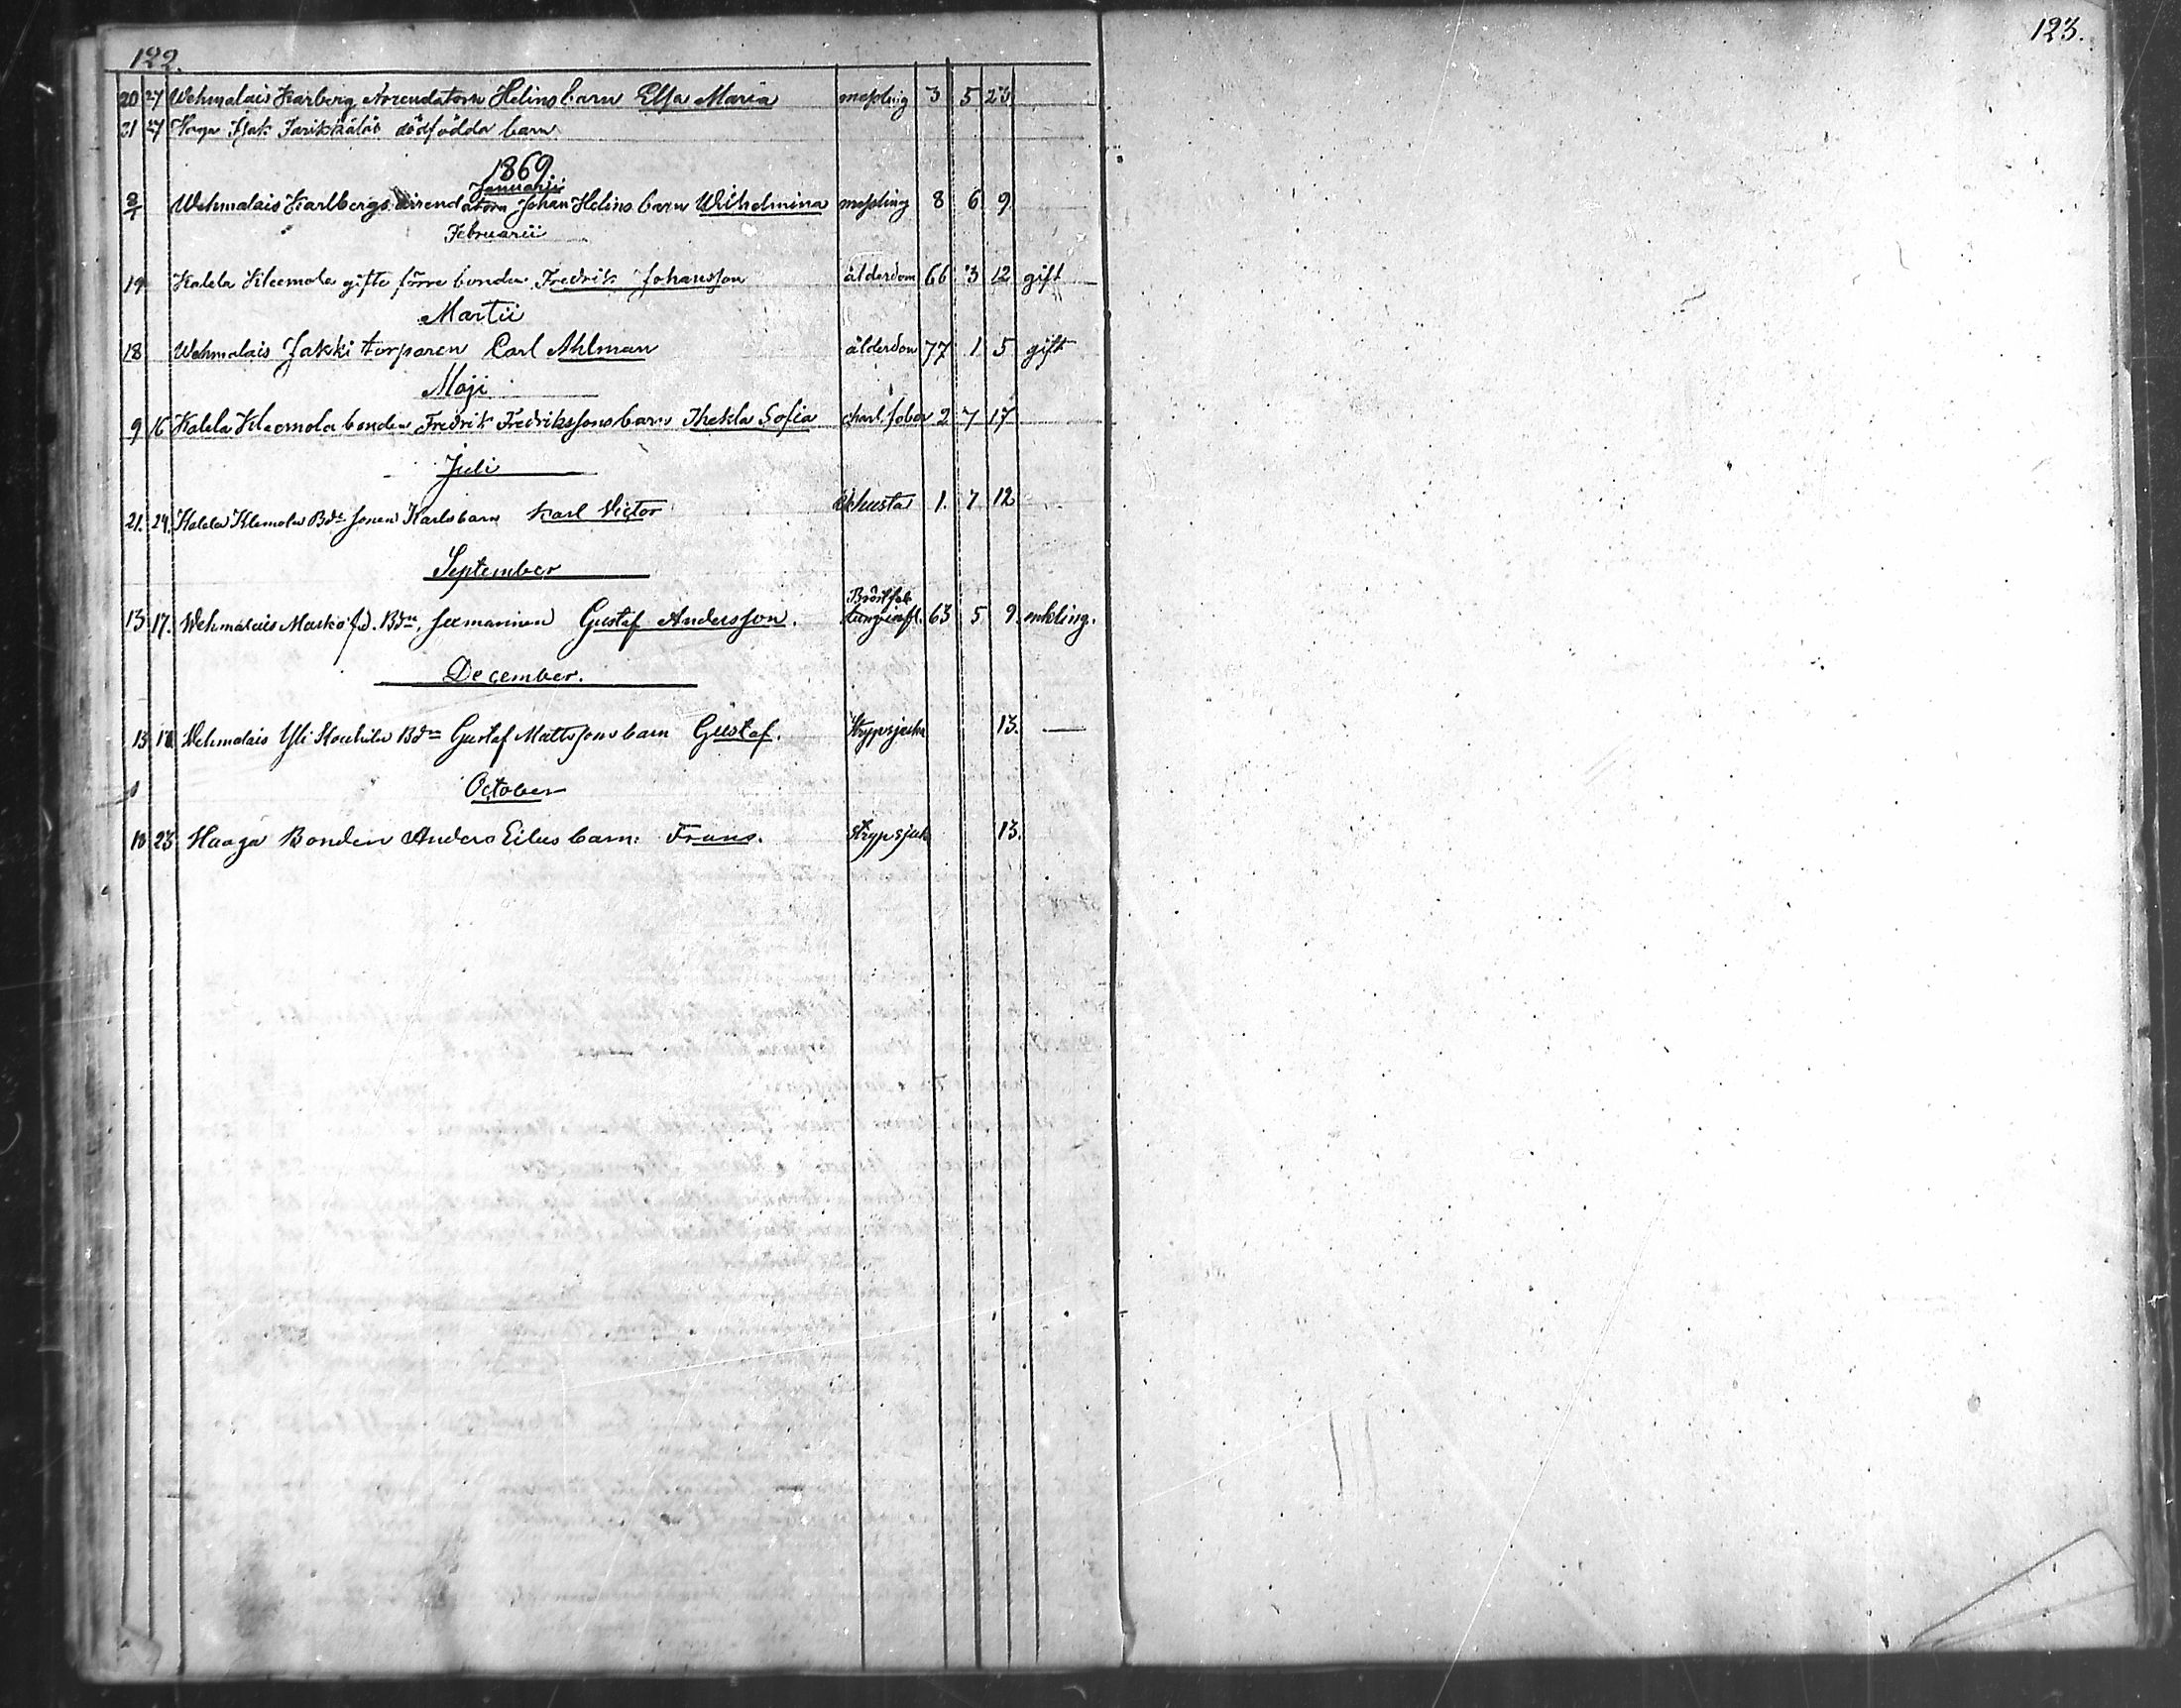 122.
123.
20 27 Wehmalais Karberg Arrendatorn Helins barn Elsa Maria messling 3 5 23
21 27 Haga Isak Jarikkäläs dödfödda barn
1869
Januarii
8/1 Wehmalais Karlbergs Arrendatorn Johan Helins barn Wilhelmina messling 8 6 9
Februarii
19. Kalela Kleemola gifte förre bonden Fredrik Johansson ålderdom 66 3 12 gift
Martii
18 Wehmalais Jakki torparen Carl Ahlman ålderdom 77 1 5 gift
Maji
9 16 Kalela Kleemola bonden Fredrik Fredrikssons barn Thekla Sofia charl. feber 2 7 17
Juli
21. 24. Kalela Klemola Bde Sonen Karls barn Karl Victor Kikhusta 1. 7 12
September
13 17. Wehmalais Markö fd. Bdn Seemannen Gustaf Andersson. Bröstfeb lunginfl. 63 5 9. enkling.
December.
13 18 Wehmalais Yli Kouhila Bdn Gustaf Mattssons barn Gustaf. Strypsjuka 13. —
October
10 23 Haaga Bonden Anders Eilus barn: Frans. Strypsjuk 13.